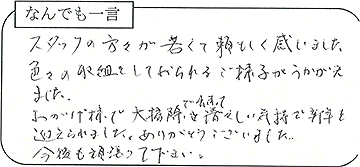 なんでも一言
スタッフの方々が若くて頼もしく感じました。
色々の取組をしておられるご様子がうかがえ
ました。
おかげ様で大掃除出来て清々しい気持で新年を
迎えられました。ありがとうございました。
今後も頑張って下さい。